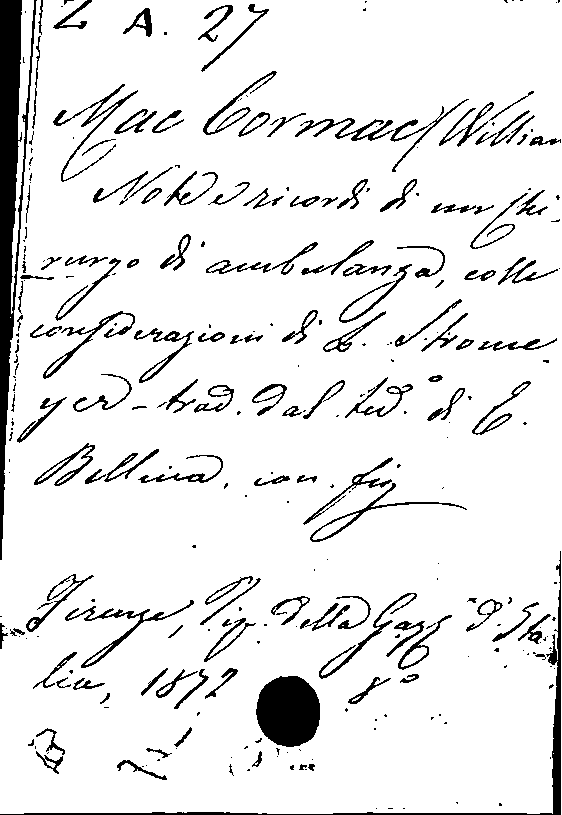 Z A. 27
Mac Cormac (William
Note e ricordi di un Chi-
rurgo di ambulanza, colle
considerazioni di L. Strome-
yer - trad. dal ted.º di E.
Bellina. con. fig
Firenze, Tip. della Gazz. d'Ita
lia, 1872 8º